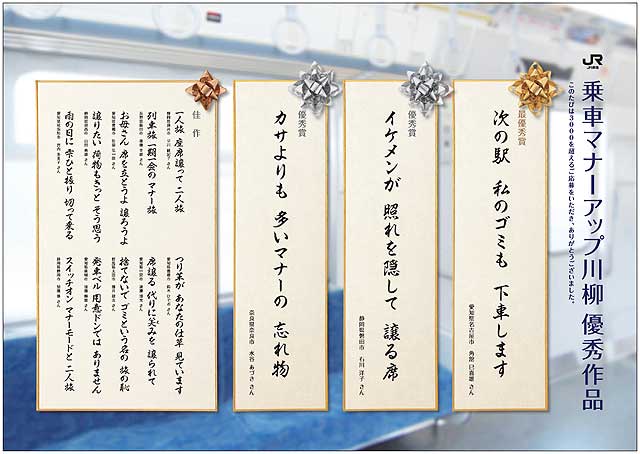 JR
乗車マナーアップ川柳 優秀作品
このたびは3000を超えるご応募をいただき、ありがとうございました。
最優秀賞
次の駅 私のゴミも 下車します
愛知県名古屋市
優秀賞
イケメンが 照れを隠して 譲る席
静岡県磐田市 石川 洋子 さん
優秀賞
カサよりも 多いマナーの 忘れ物
奈良県奈良市 水谷 あづさ さん
佳作
二人旅 座席譲って 二人旅
列車旅 一期一会の マナー旅
お母さん 席を立とうよ 譲ろうよ
譲りたい 荷物もきっと そう思う
雨の日に 雫ひと振り 切って乗る
つり革が あなたの仕草 見ています
席譲る 代りに笑みを 譲られて
捨てないで ゴミという名の 旅の恥
発車ベル 用意ドンでは ありません
スイッチオン マナーモードと 二人旅